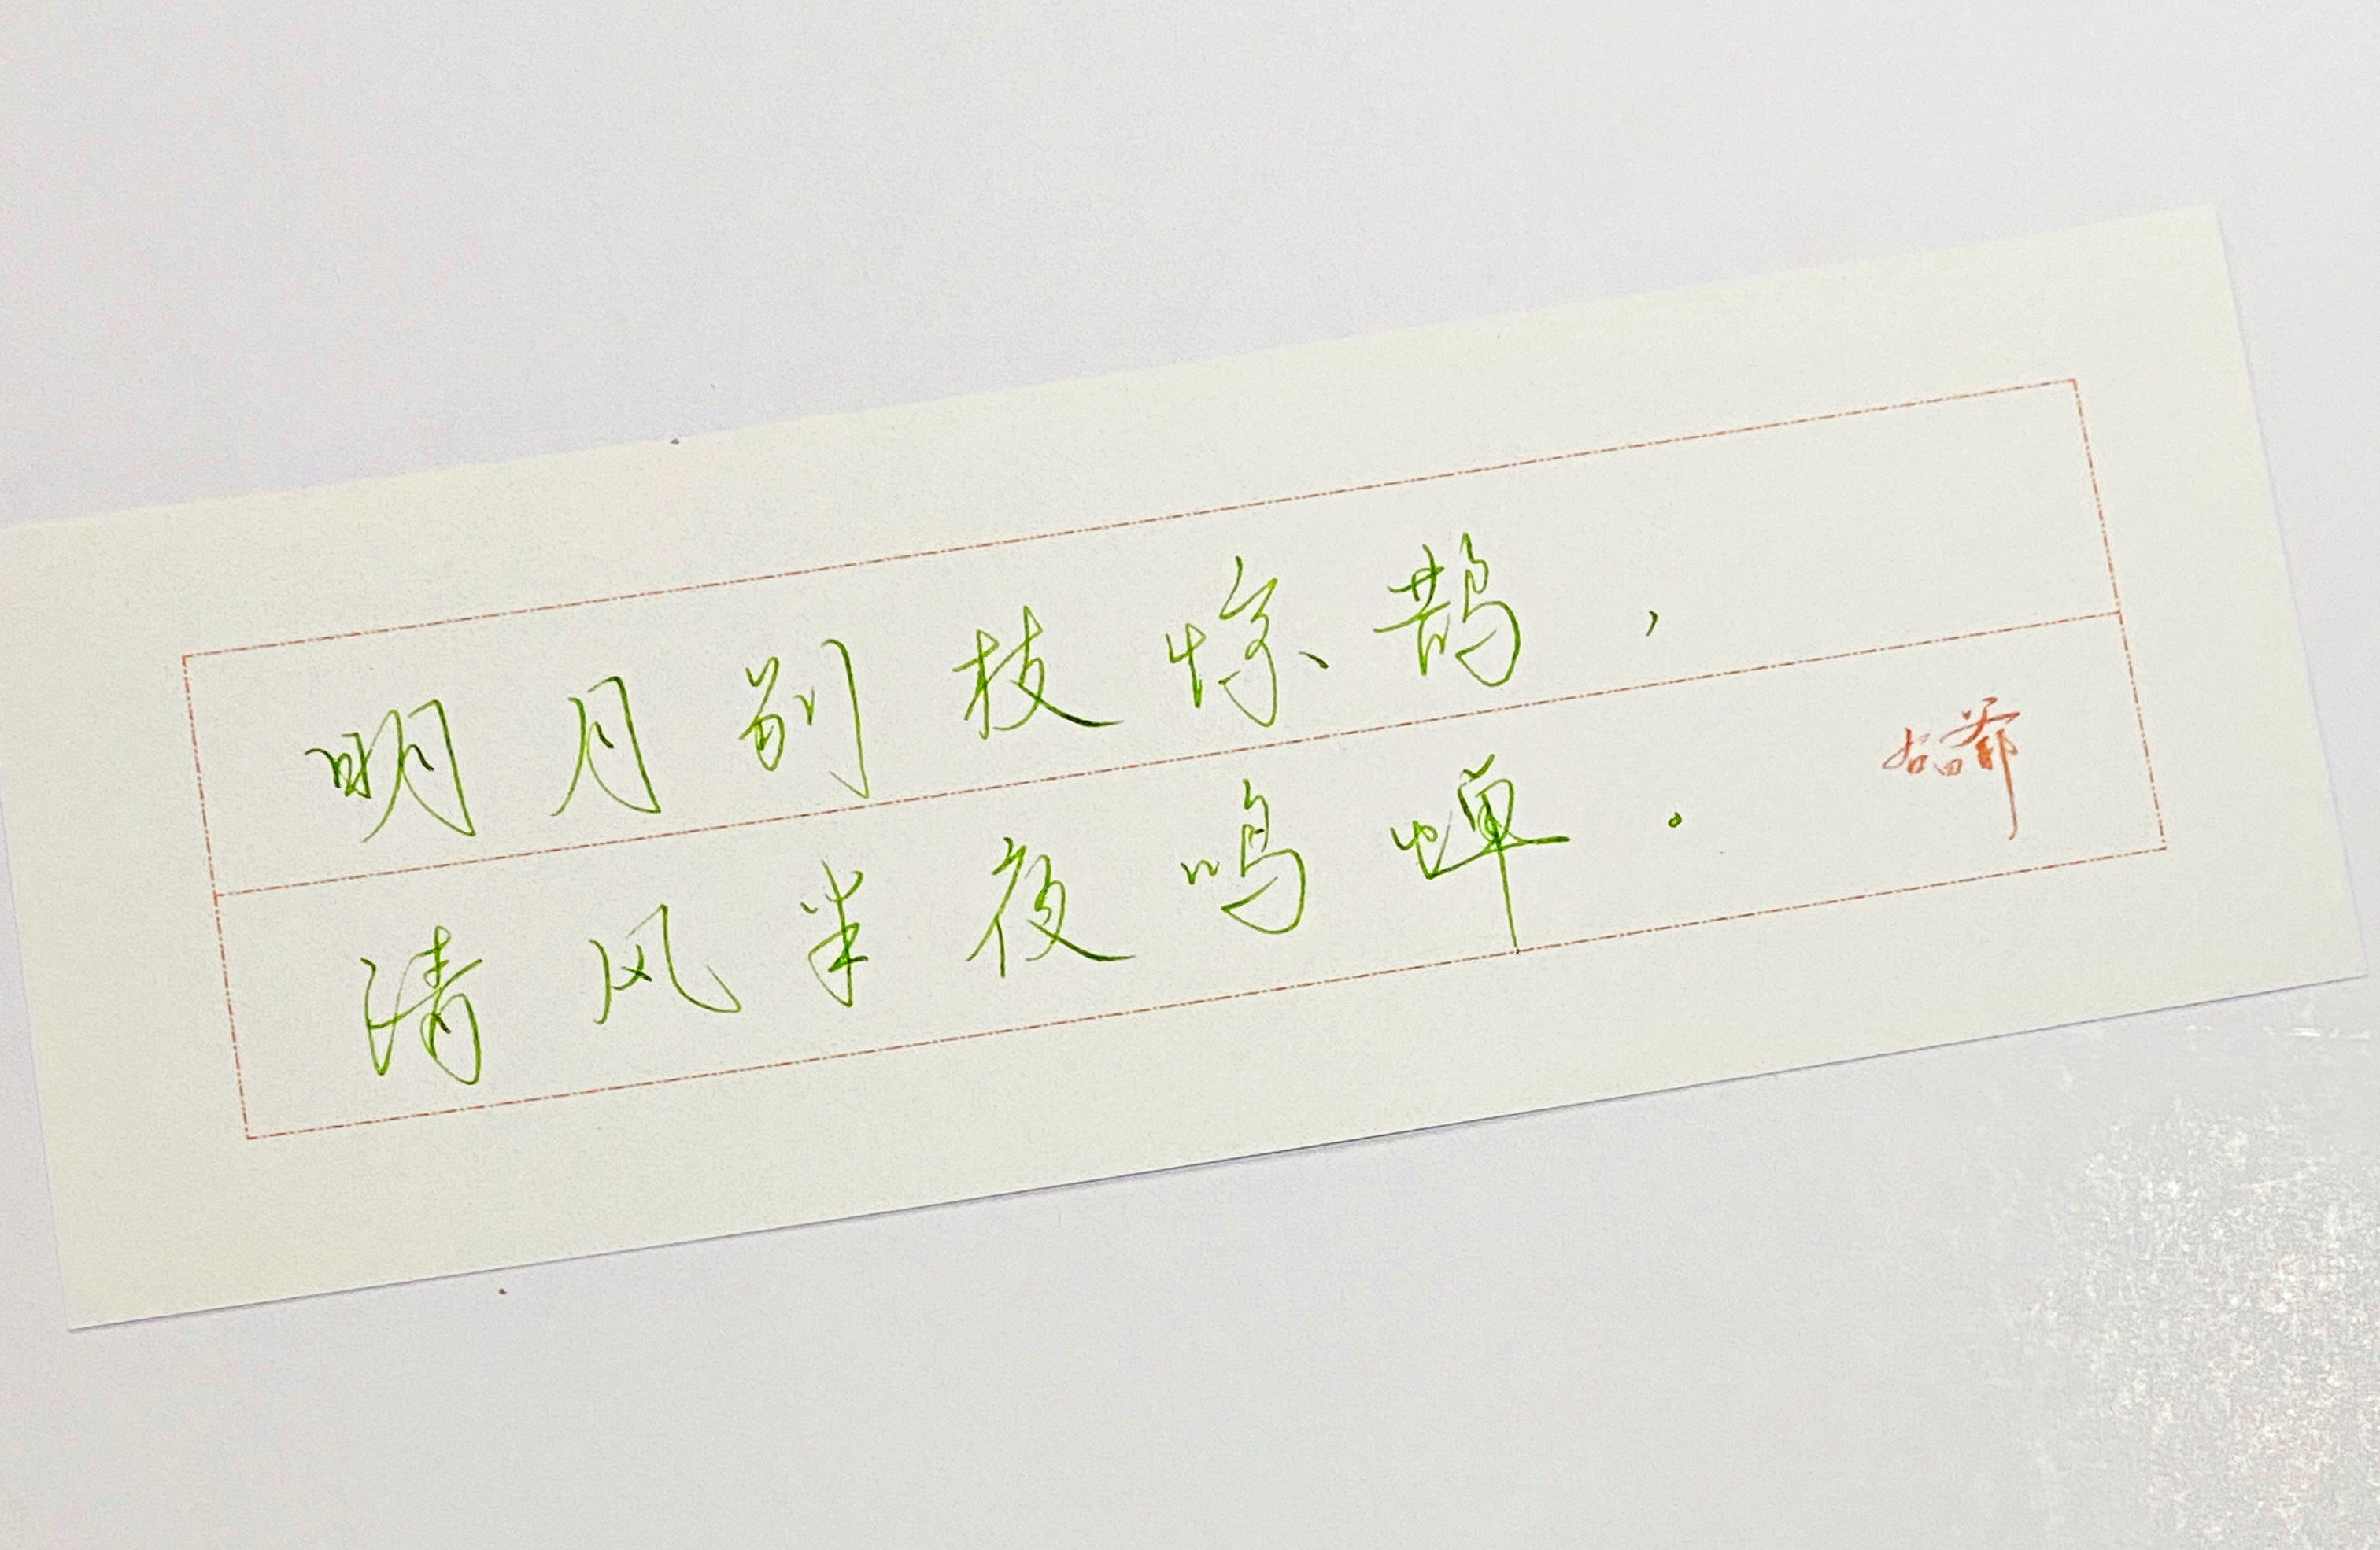 明月别枝惊鹊，
清风半夜鸣蝉.